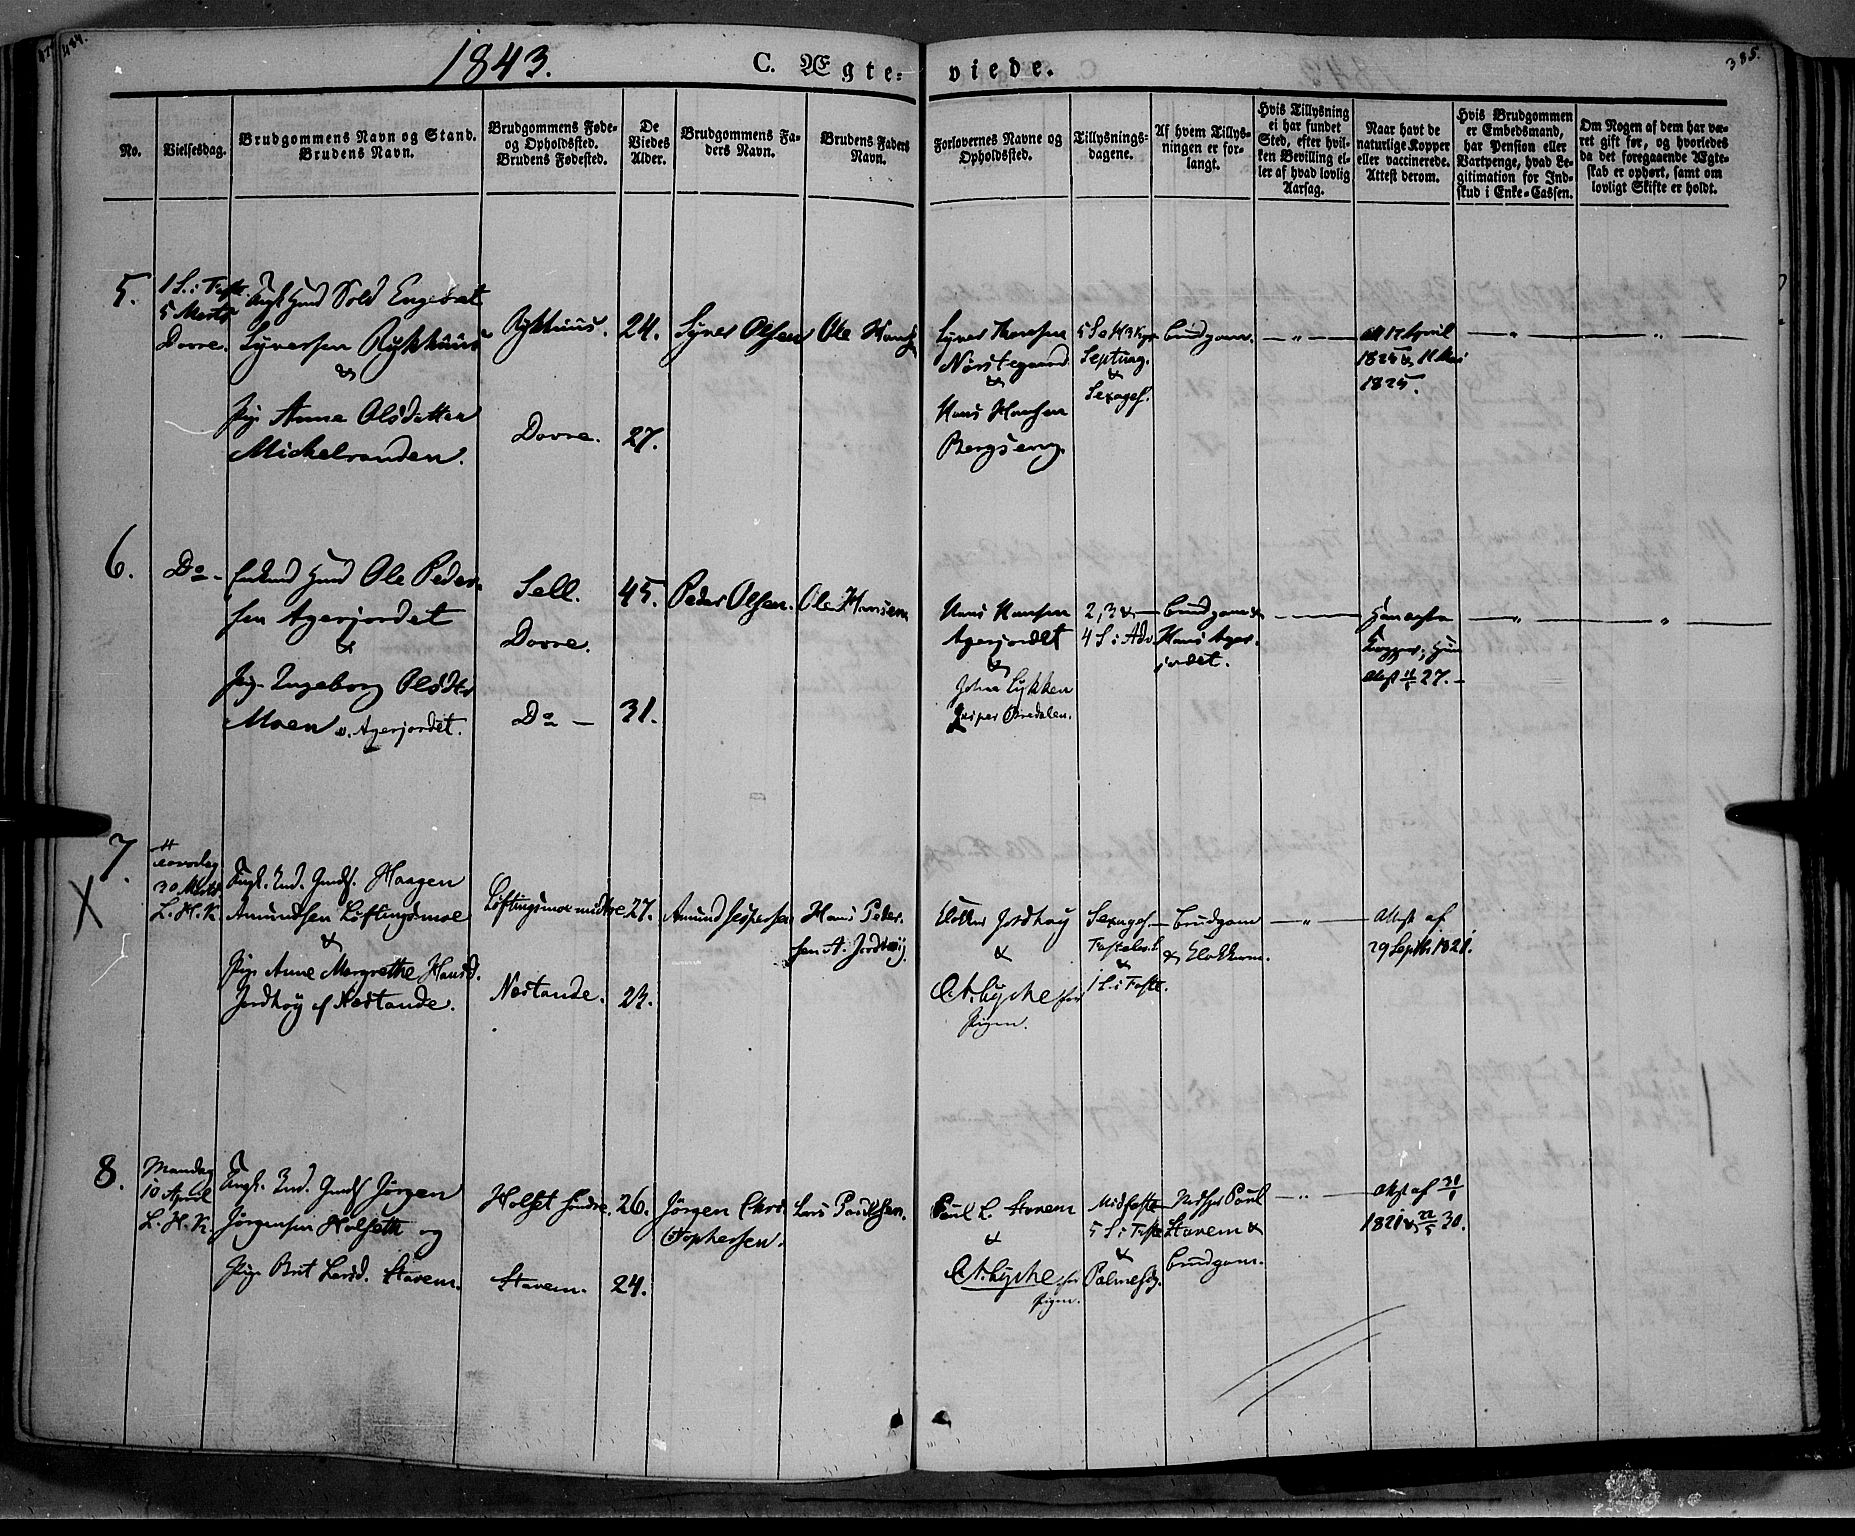 484.
1843.
C. Ægte=
viede.
385.
No.
Vielsesdag.
Brudgommens Navn og Stand.
Brudens Navn.
Brudgommens Føde-
og Opholdssted.
Brudens Fødested.
De
Viedes
Alder.
Brudgommens Fa-
ders Navn.
Brudens Faders
Navn.
Forlovernes Navne og
Opholdssted.
Tillysnings-
dagene.
Af hvem Tillys-
ningen er for-
langt.
Hvis Tillysning
ei har fundet
Sted, efter hvil-
ken Bevilling el-
ler af hvad lovlig
Aarsag.
Naar havt de
naturlige Kopper
eller vaccinerede.
Attest derom.
Hvis Brudgommen
er Embedsmand,
har Pension eller
Vartpenge, hvad Le-
gitimation for Ind-
skud i Enke-Cassen.
Om Nogen af dem har væ-
ret gift før, og hvorledes
da det foregaaende Ægte-
skab er ophørt, samt om
lovligt Skifte er holdt.
5.
1 S. i Faste
5 Marts
Dovre.
Sold Engebret
Syversen Rykhuus
&
Pig. Anne Olsdatter
Michelranden.
Rykhuus.
Dovre.
24.
27.
Syver Olsen
Ole
Syver
Norstegaard
&
Hans Hansen
Bergseng.
Septuag.
&
Sexages.
Brudgom.
17 April
1825 &
1825.
6.
Do -
Ole Peder-
sen Agerjordet
&
Pig. Ingeborg Olsdtr
Moen v. Agerjordet.
Sell.
Dovre.
Do -
45.
31.
Peder Olsen.
Ole Hansen
Hans Hansen
Agerjordet
&
Johne Lykken
2, 3 & -
4 S. i Adv.
Brudgom &
Hans Ager-
jordet.
Kopper;
Attest 27. -
7.
X
30 Marts
L. H. K.
Ungk. Haagen
Amundsen Løftingsmoe
&
Pig. Anne Margrethe Hansd.
Jordhøy af Nestande.
Løftingsmoe nedtre
Nestande.
27.
23.
Amund
Hans Peder-
sen A. Jordhøy
Klokker Jordhøy
&
C. A. Lyche for
Pigen.
Sexages.
Fastelavn
&
1 S. i Faste.
Brudgom
& Klokkeren.
Attest af
29 Septbr. 1821.
8.
Mandag
10 April
L. H. K.
Ungk. Jørgen
Jørgensen Holseth og
Pig. Brit Larsd. Stavem.
Holset søndre.
Stavem.
26.
24.
Jørgen Chri-
stophersen.
Lars Poulsen.
Poul L. Stavem
&
C. A. Lyche for
Pigen.
Midfaste
5 S. i Faste
&
Palmesdg.
Poul
Stavem &
Brudgom.
Attest af
1821 & 22/5 30.